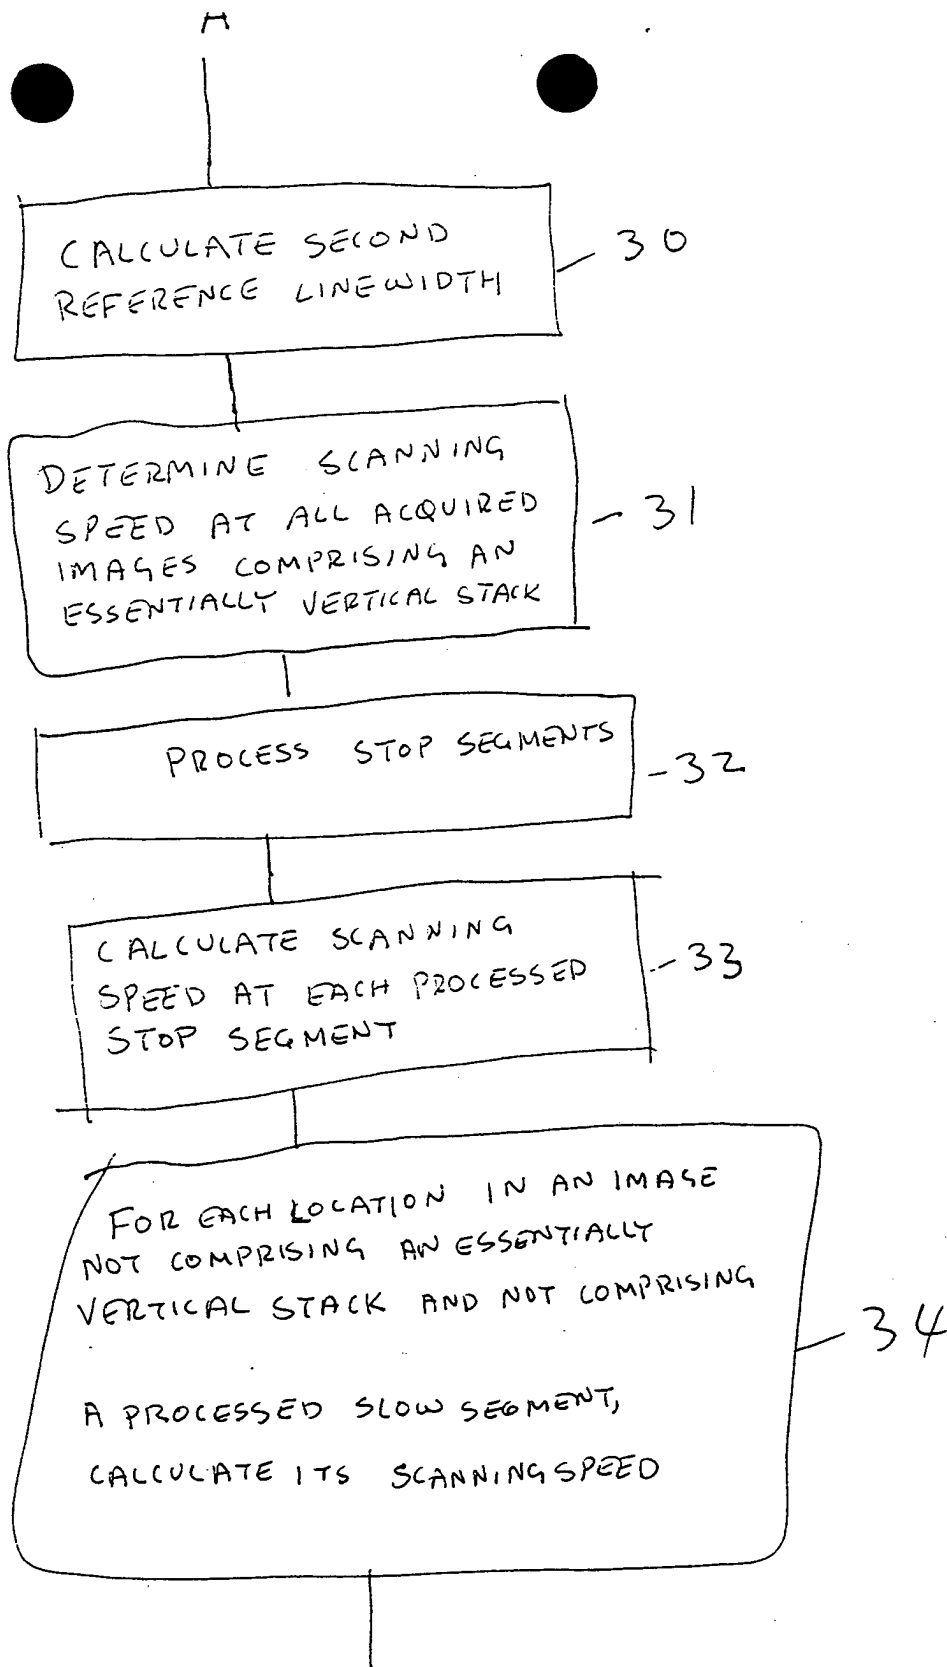 CALCULATE SECOND
REFERENCE LINEWIDTH
30
DETERMINE SCANNING
SPEED AT ALL ACQUIRED
IMAGES COMPRISING AN
ESSENTIALLY VERTICAL STACK
31
PROCESS STOP SEGMENTS
32
CALCULATE SCANNING
SPEED AT EACH PROCESSED
STOP SEGMENT
33
FOR EACH LOCATION IN AN IMAGE
NOT COMPRISING AN ESSENTIALLY
VERTICAL STACK AND NOT COMPRISING
A PROCESSED SLOW SEGMENT,
CALCULATE ITS SCANNING SPEED
34